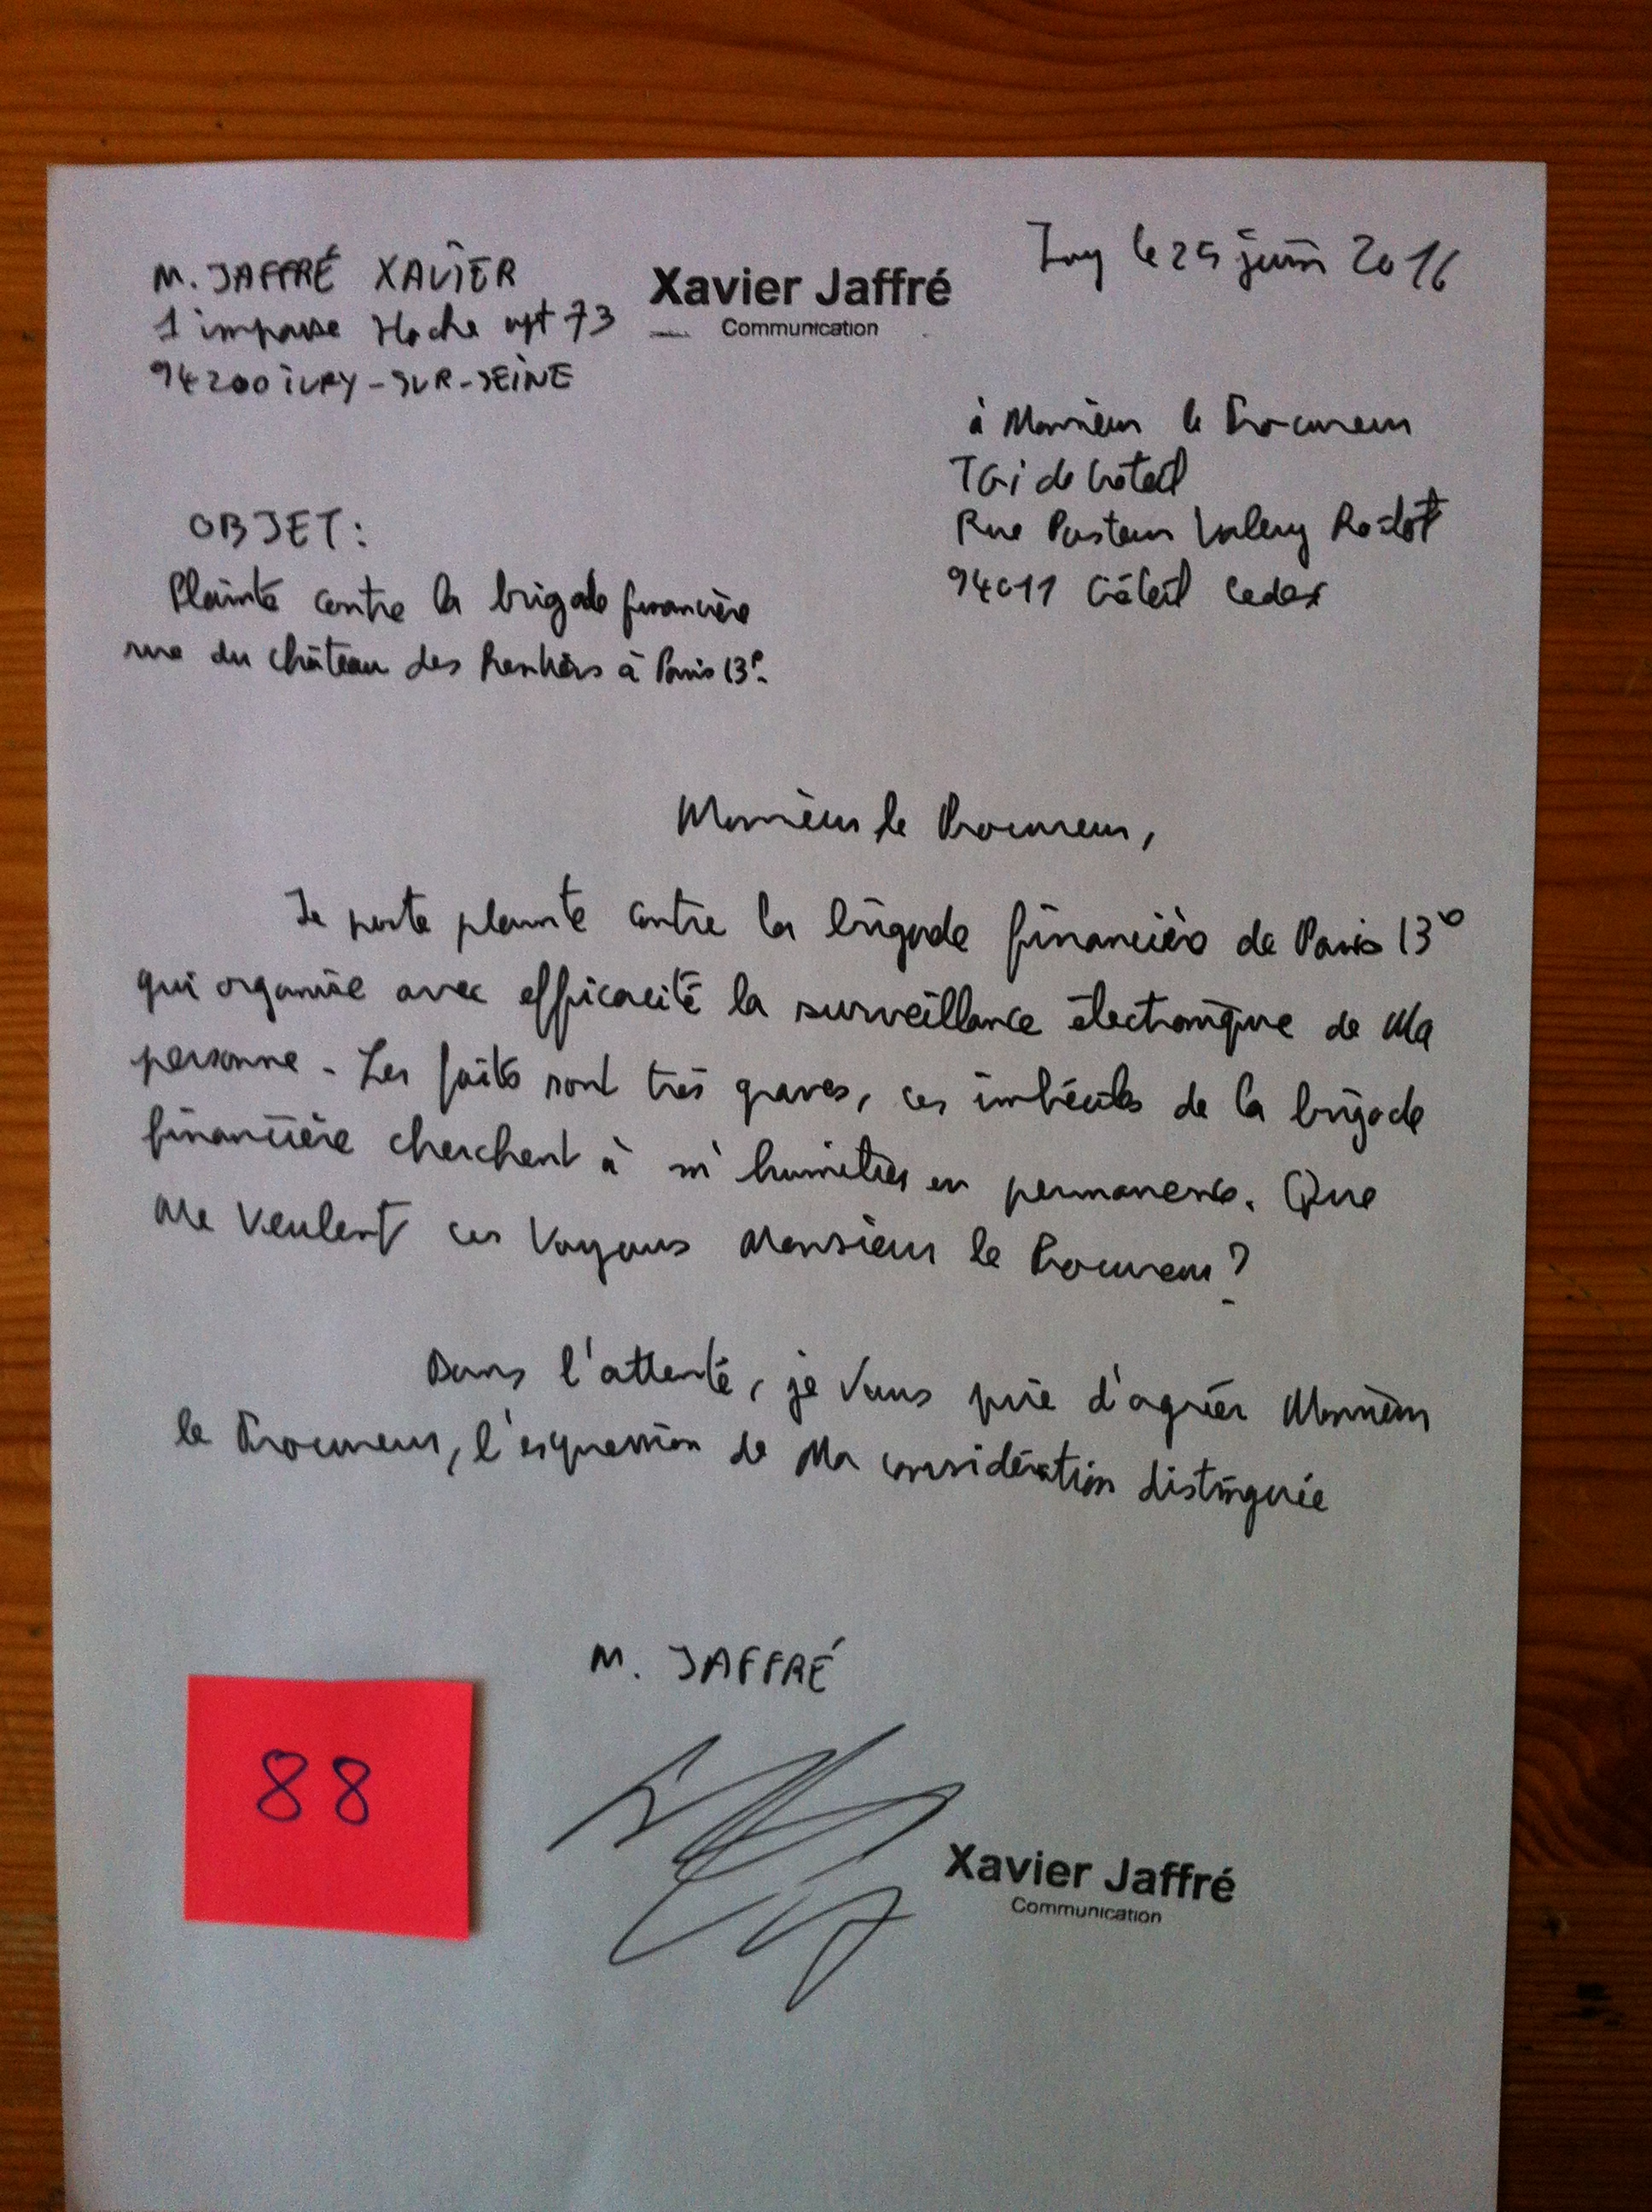 M. JAFFRÉ XAVIER
1 impasse Hoche apt 73
94200 IVRY-SUR-SEINE
Xavier Jaffré
Communication
Ivry le 25 juin 2016
à Monsieur le Procureur
TGi de Créteil
Rue Pasteur Valery Radot
94011 Créteil Cedex
OBJET:
Plainte contre la brigade financière
rue du château des Rentiers à Paris 13e.
Monsieur le Procureur,
Je porte plainte contre la brigade financière de Paris 13e
qui organise avec efficacité la surveillance électronique de Ma
personne. Les faits sont très graves, ces imbéciles de la brigade
financière cherchent à m'humilier en permanence. Que
Me veulent ces Voyous Monsieur le Procureur?
Dans l'attente, je vous prie d'agréer Monsieur
le Procureur, l'expression de Ma considération distinguée
M. JAFFRÉ
88
Xavier Jaffré
Communication